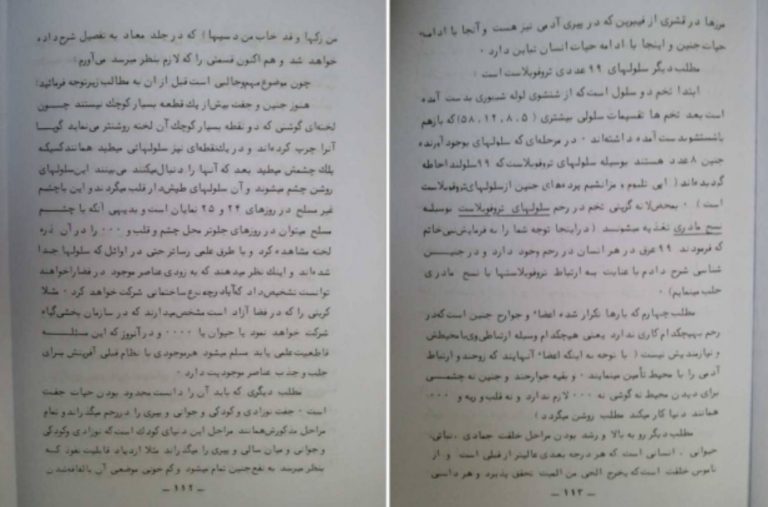 من زکیها و قد خاب من دسیها) که در جلد معاد به تفصیل شرح داده
خواهد شد و هم اکنون قسمتی را که لازم بنظر میرسد می‌آورم:
چون موضوع مهم‌وجالبی است قبل از آن به مطالب زیرتوجه فرمائید:
هنوز جنین و جفت بیش‌از یك قطعه بسیار کوچك نیستند چـون
لخته‌ای گوشتی که دو نقطه بسیار کوچك آن لخته روشنتر می‌نماید گویـا
آنرا چرب کرده‌اند و در یك‌نقطه‌ای نیز سلولهائی میطپد همانندکسیکه
پلك چشمش میطپد بعد که آنها را دنبال‌میکنند می‌بینند این‌سلولهای
روشن چشم میشوند و آن سلولهای طپش‌دار قلب میگردند و این باچشم
غیر مسلح در روزهای ۲۴ و ۲۵ نمایان است و بدیهی آنکه با چشـم
مسلح میتوان در روزهای جلوتر محل چشم و قلب و ۰۰۰ را در آن ذره
لخته مشاهده کرد و با طرق علمی رساتر حتی در اوائل که سلولها جـدا
شده‌اند و اینك نظر میدهند که به زودی عناصر موجود در فضا راخواهند
توانست تشخیص‌داد که‌آیاد رچه‌نوع ساختمانی شرکت خواهد کرد ۰ مثلا
کربنی را که در فضا آزاد است مشخص‌میدارند که در سازمان بخشی‌گیاه
شرکت خواهد نمود یا حیوان یا ۰۰۰۰ و در آنروز که این مسئلـه
قاطعیت‌علمی یابد مسلم میشود هرموجودی با نظام قبلی آفرینش برای
جلب و جذب عناصر موجودیت دارد ۰
مطلب دیگری که باید آن را دانست محدود بودن حیات جفت
است ۰ جفت نوزادی و کودکی و جوانی و پیری را دررحم میگذراند و تمام
مراحل مذکورش‌همانند مراحل این دنیای کودك است‌که نوزادی وکودکی
و جوانی و میان سالی و پیری را میگذراند مثلا ازدیاد قابلیت نفوذ کـه
بنظر میرسد به نفع‌جنین تمام میشود و کم‌خونی موضعی آن
ـ ۱۱۲ ـ
مرزها در قشری از فیبرین که در پیری آدمی نیز هست و آنجا با ادامه
حیات جنین و اینجا با ادامه حیات انسان تباین دارد ۰
مطلب‌دیگر سلولهای ۹۹ عددی تروفوبلاست است :
ابتدا تخم دو سلول است‌که از شستشوی لوله شیپوری بدست آمده
است بعد تخم ها تقسیمات سلولی بیشتری ( ۵، ۸، ۱۲، ۵۸)که بازهم
باشستشوبدست آمده داشته‌اند ۰ در مرحله‌ای که سلولهای بوجودآورنده
جنین ۸عدد هستند بوسیله سلولهای تروفوبلاست که ۹۹سلولند احاطه
گردیده‌اند( پرده‌های جنین ازسلولهای‌تروفوبلاست
است) ۰ بمحض‌لانه گزینی تخم در رحم سلولهای تروفوبلاست بوسیله
نسج مادری تغذیه میشوند (دراینجا توجه شما را به فرمایش‌نبی‌خاتم
که فرمودند ۹۹عرق در هر انسان در رحم وجود دارد و در جنیـن
شناسی شرح دادم با عنایت به ارتباط تروفوبلاستها با نسج مادری
جلب مینمایم) ۰
مطلب چهارم که بارها تکرار شده اعضاء و جوارح جنین است‌که‌در
رحم بهیچکدام کاری ندارد یعنی هیچکدام وسیله ارتباطی وی‌بامحیطش
و نیازمندیش نیست ( با توجه به اینکه اعضاء آنهایند که روحند و ارتباط
آدمی را با محیط تأمین مینمایند ۰ و بقیه جوارحند و جنین نه چشمـی
برای دیدن محیط نه گوشی نه ۰۰۰ لازم ندارد و نه قلب و ریه و ۰۰۰
همانند دنیا کار میکند مطلب روشن میگردد )
مطلب دیگر رو به بالا و رشد بودن مراحل خلقت جمادی ، نباتی،
حیوانی ، انسانی است که هر درجه بعدی عالیتر از قبلی است و از
ناموس خلقت است‌که یخرج الحی من المیت تحقق پذیرد و هر داسی
ـ ۱۱۳ ـ